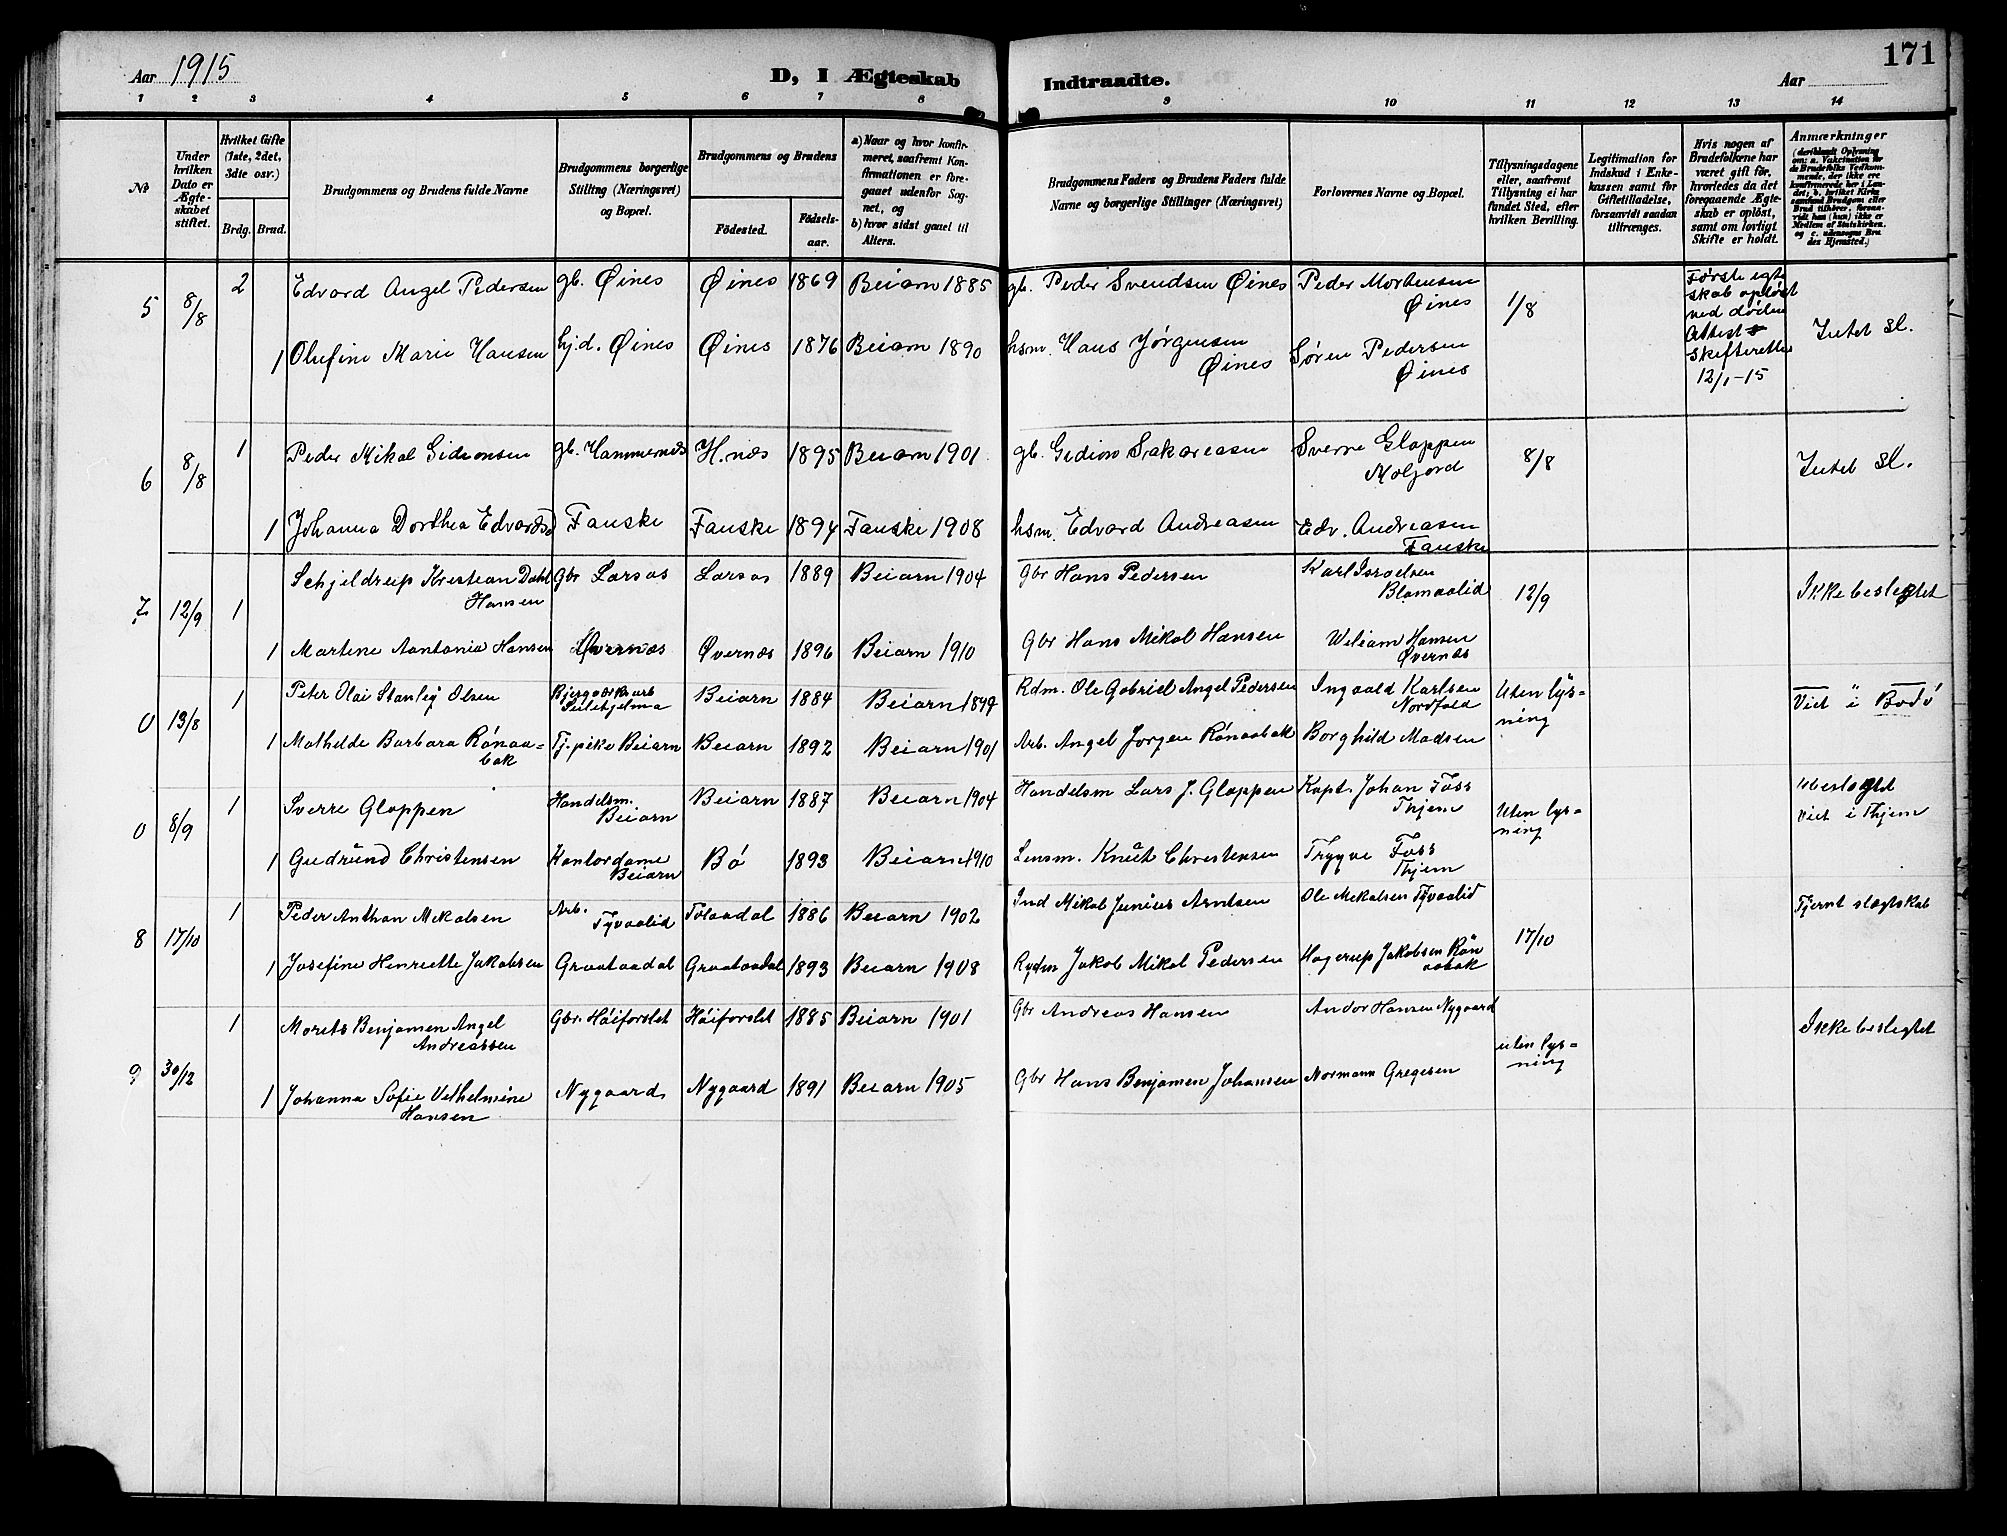 171
Aar 1915
D, I Ægteskab Indtraadte.
Aar
1 2 3 4 5 6 7 8 9 10 11 12 13 14
№
Under hvilken Dato er Ægteskabet stiftet.
Hvilket Gifte (1ste, 2det, 3die osv.)
Brdg. Brud.
Brudgommens og Brudens fulde Navne
Brudgommens borgerlige Stilling (Næringsvei) og Bopæl.
Brudgommens og Brudens
Fødested.
Fødselsaar.
a) Naar og hvor konfirmeret, saafremt Konfirmationen er foregaaet udenfor Sognet, og
b) hvor sidst gaaet til Alters.
Brudgommens Faders og Brudens Faders fulde Navne og borgerlige Stillinger (Næringsvei)
Forlovernes Navne og Bopæl.
Tillysningsdagene eller, saafremt Tillysning ei har fundet Sted, efter hvilken Bevilling.
Legitimation for Indskud i Enkekassen samt for Giftetilladelse, forsaavidt saadan tiltrænges.
Hvis nogen af Brudefolkene har været gift før, hvorledes da det foregaaende Ægteskab er opløst, samt om lovligt Skifte er holdt.
Anmærkninger
5 8/8 2 Edvard Angel Pedersen gb. Øines Øines 1869 Beiarn 1885 gb. Peder Svendsen Øines Peder Mortensen Øines 1/8 Første egteskab opløst ved døden Attest skifteretten 12/1-15 Intet sl.
1 Olufine Marie Hansen hj.d. Øines Øines 1876 Beiarn 1890 hsm. Hans Jørgensen Øines Søren Pedersen Øines
6 8/8 1 Peder Mikal Gideonsen gb. Hammernæs H.næs 1895 Beiarn 1901 gb. Gedion Sakariasen Sverre Gloppen Moljord 8/8 Intet sl.
1 Johanna Dorthea Edvardsd Fauske Fauske 1894 Fauske 1908 hsm. Edvard Andreasen Edv. Andreasen Fauske
7 12/9 1 Schjeldrup Kristian Dahl Hansen Gbr Larsos Larsos 1889 Beiarn 1904 Gbr Hans Pedersen Karl Israelsen Blamoalid 12/9 Ikke beslegtet
1 Martine Aantonia Hansen Øvernæs Øvernæs 1896 Beiarn 1910 Gbr Hans Mikal Hansen Wiliam Hansen Øvernæs
0 13/8 1 Peter Olai Stanley Olsen Bjergværksarb Sulitjelma Beiarn 1884 Beiarn 1849 Rdm. Ole Gabriel Angel Pedersen Ingvald Karlsen Nordfold Uten lysning Viet i Bodó
1 Mathilde Barbara Rónaabak Tj.pike Beiarn Beiarn 1892 Beiarn 1901 Arb. Angel Jorgen Rónaabak Borghild Madsen
0 8/9 1 Sverre Gloppen Handelsm. Beiarn Beiarn 1887 Beiarn 1904 Handelsm Lars J. Gloppen Kapt. Johan Foss Thjem Uten lysning Ubeslegtet Viet i Thjem
1 Gudrund Christensen Kontordame Beiarn Bó 1893 Beiarn 1910 Lensm. Knut Christensen Trygve Foss Thjem
8 17/10 1 Peder Anthon Mikalsen Arb. Tyvaalid Tolaadal 1886 Beiarn 1902 Ind Mikal Junius Arntsen Ole Mikalsen Tyvaalid 17/10 Fjernt slegtskab
1 Josefine Henriette Jakobsen Graataadal Graataadal 1893 Beiarn 1908 Rydm Jakob Mikal Pedersen Hagerup Jakobsen Rónaabak
9 30/12 1 Morits Benjamen Angel Andreassen Gbr. Hóiforslet Hóiforslet 1885 Beiarn 1901 Gbr Andreas Hansen Andor Hansen Nygaard uten lysning Ikke beslegtet
1 Johanna Sofie Vilhelmine Hansen Nygaard Nygaard 1891 Beiarn 1905 Gbr Hans Benjamen Johansen Normann Gregesen